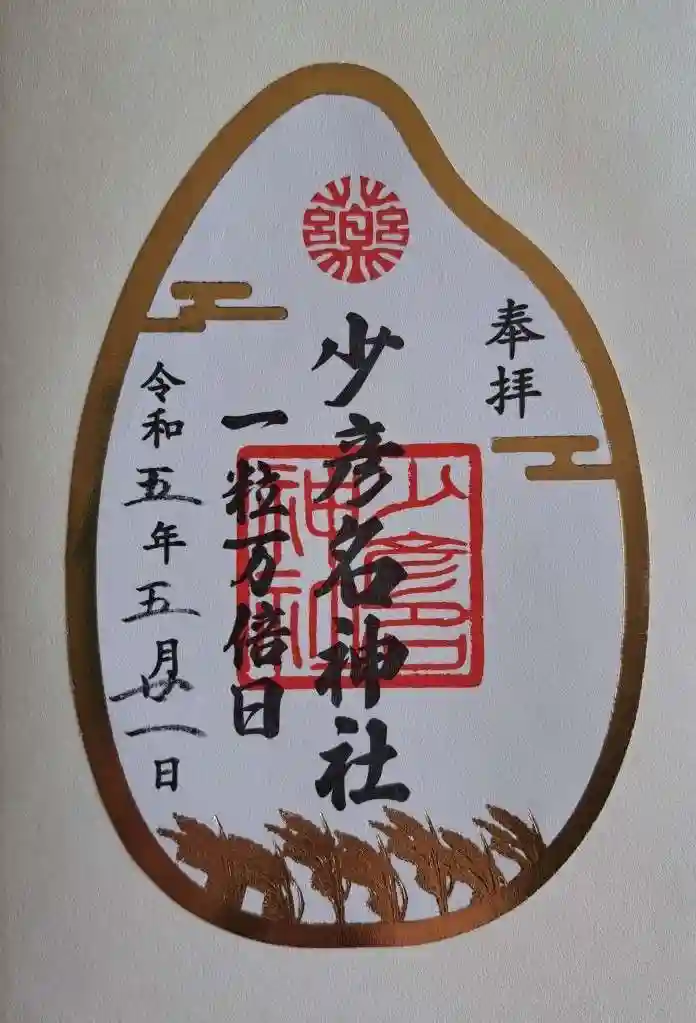 奉拝
薬
少彦名神社
少彦名神社
一粒万倍日
令和五年五月廿一日